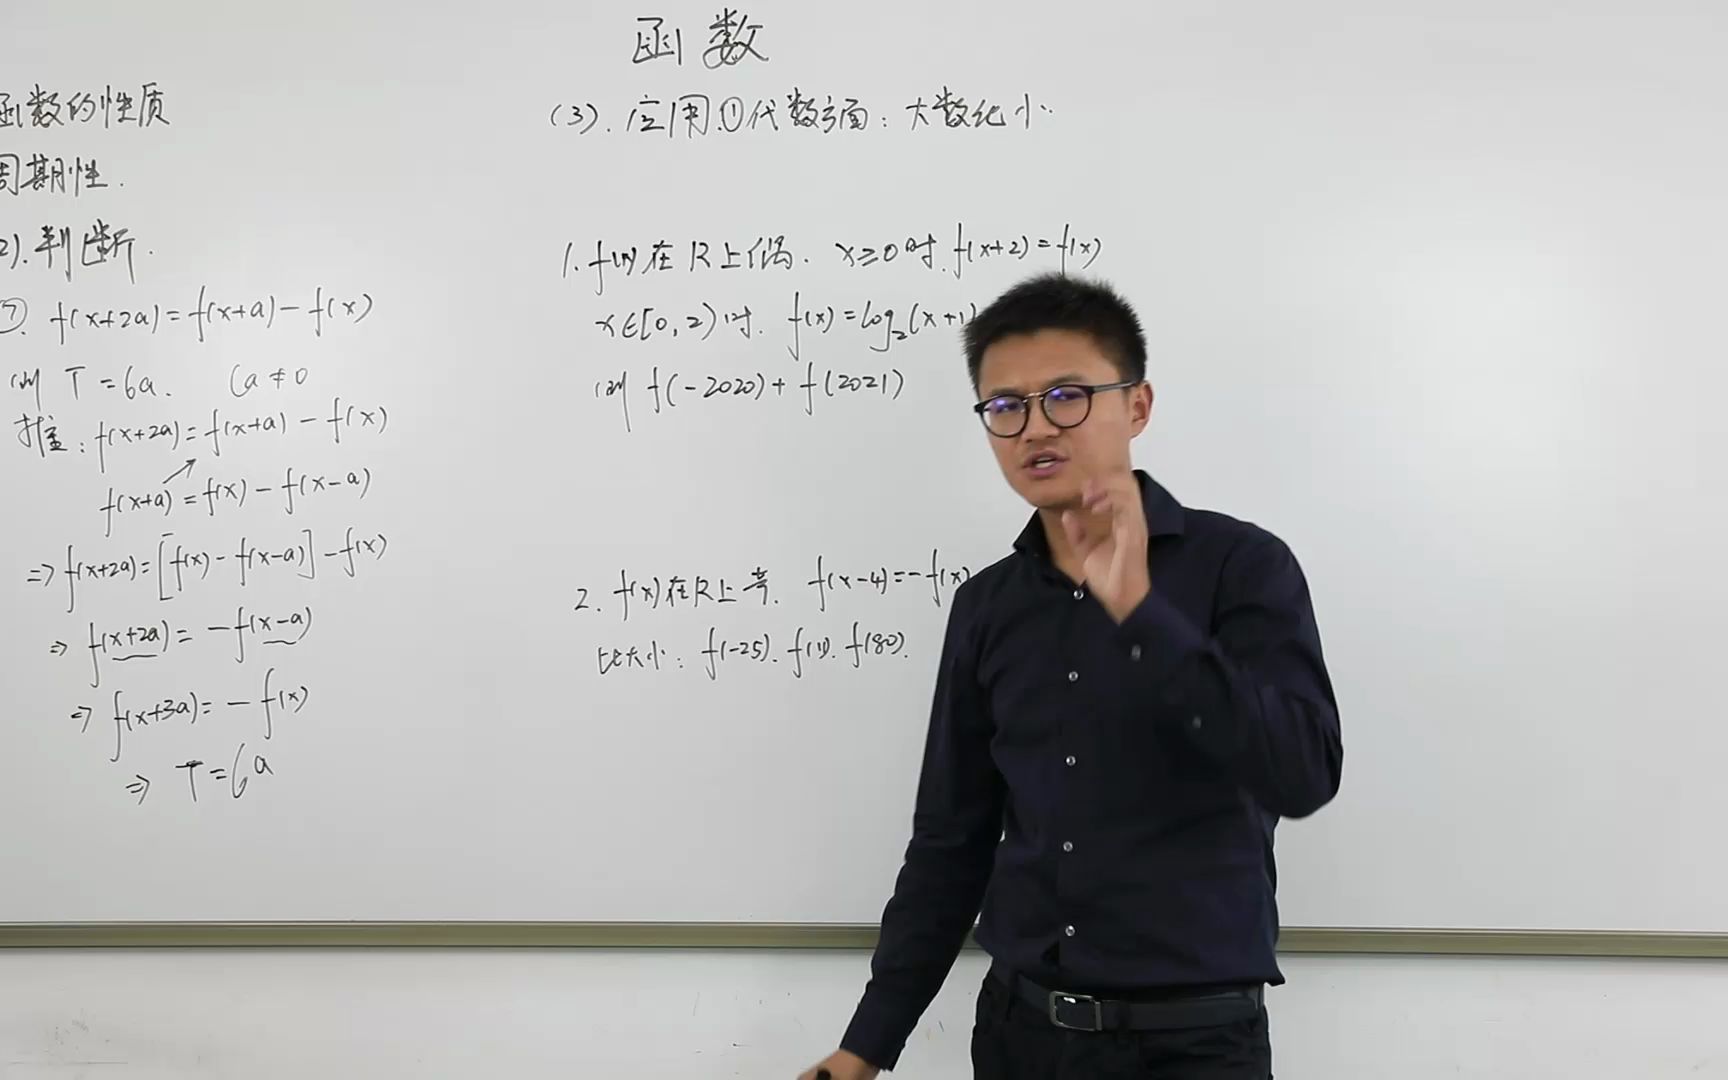 函数
函数的性质
周期性.
2).判断.
⑦. f(x+2a)=f(x+a)-f(x)
则 T=6a. (a≠0
推: f(x+2a)=f(x+a)-f(x)
f(x+a)=f(x)-f(x-a)
⇒f(x+2a)=[f(x)-f(x-a)]-f(x)
⇒ f(x+2a)=-f(x-a)
⇒ f(x+3a)=-f(x)
⇒ T=6a
(3). 应用.①代数方面: 大数化小.
1. f(x)在R上偶. x≥0时.f(x+2)=f(x)
x∈[0,2)时. f(x)=log₂(x+1)
则 f(-2020)+f(2021)
2. f(x)在R上奇. f(x-4)=-f(x)
比大小: f(-25). f(11). f(80).